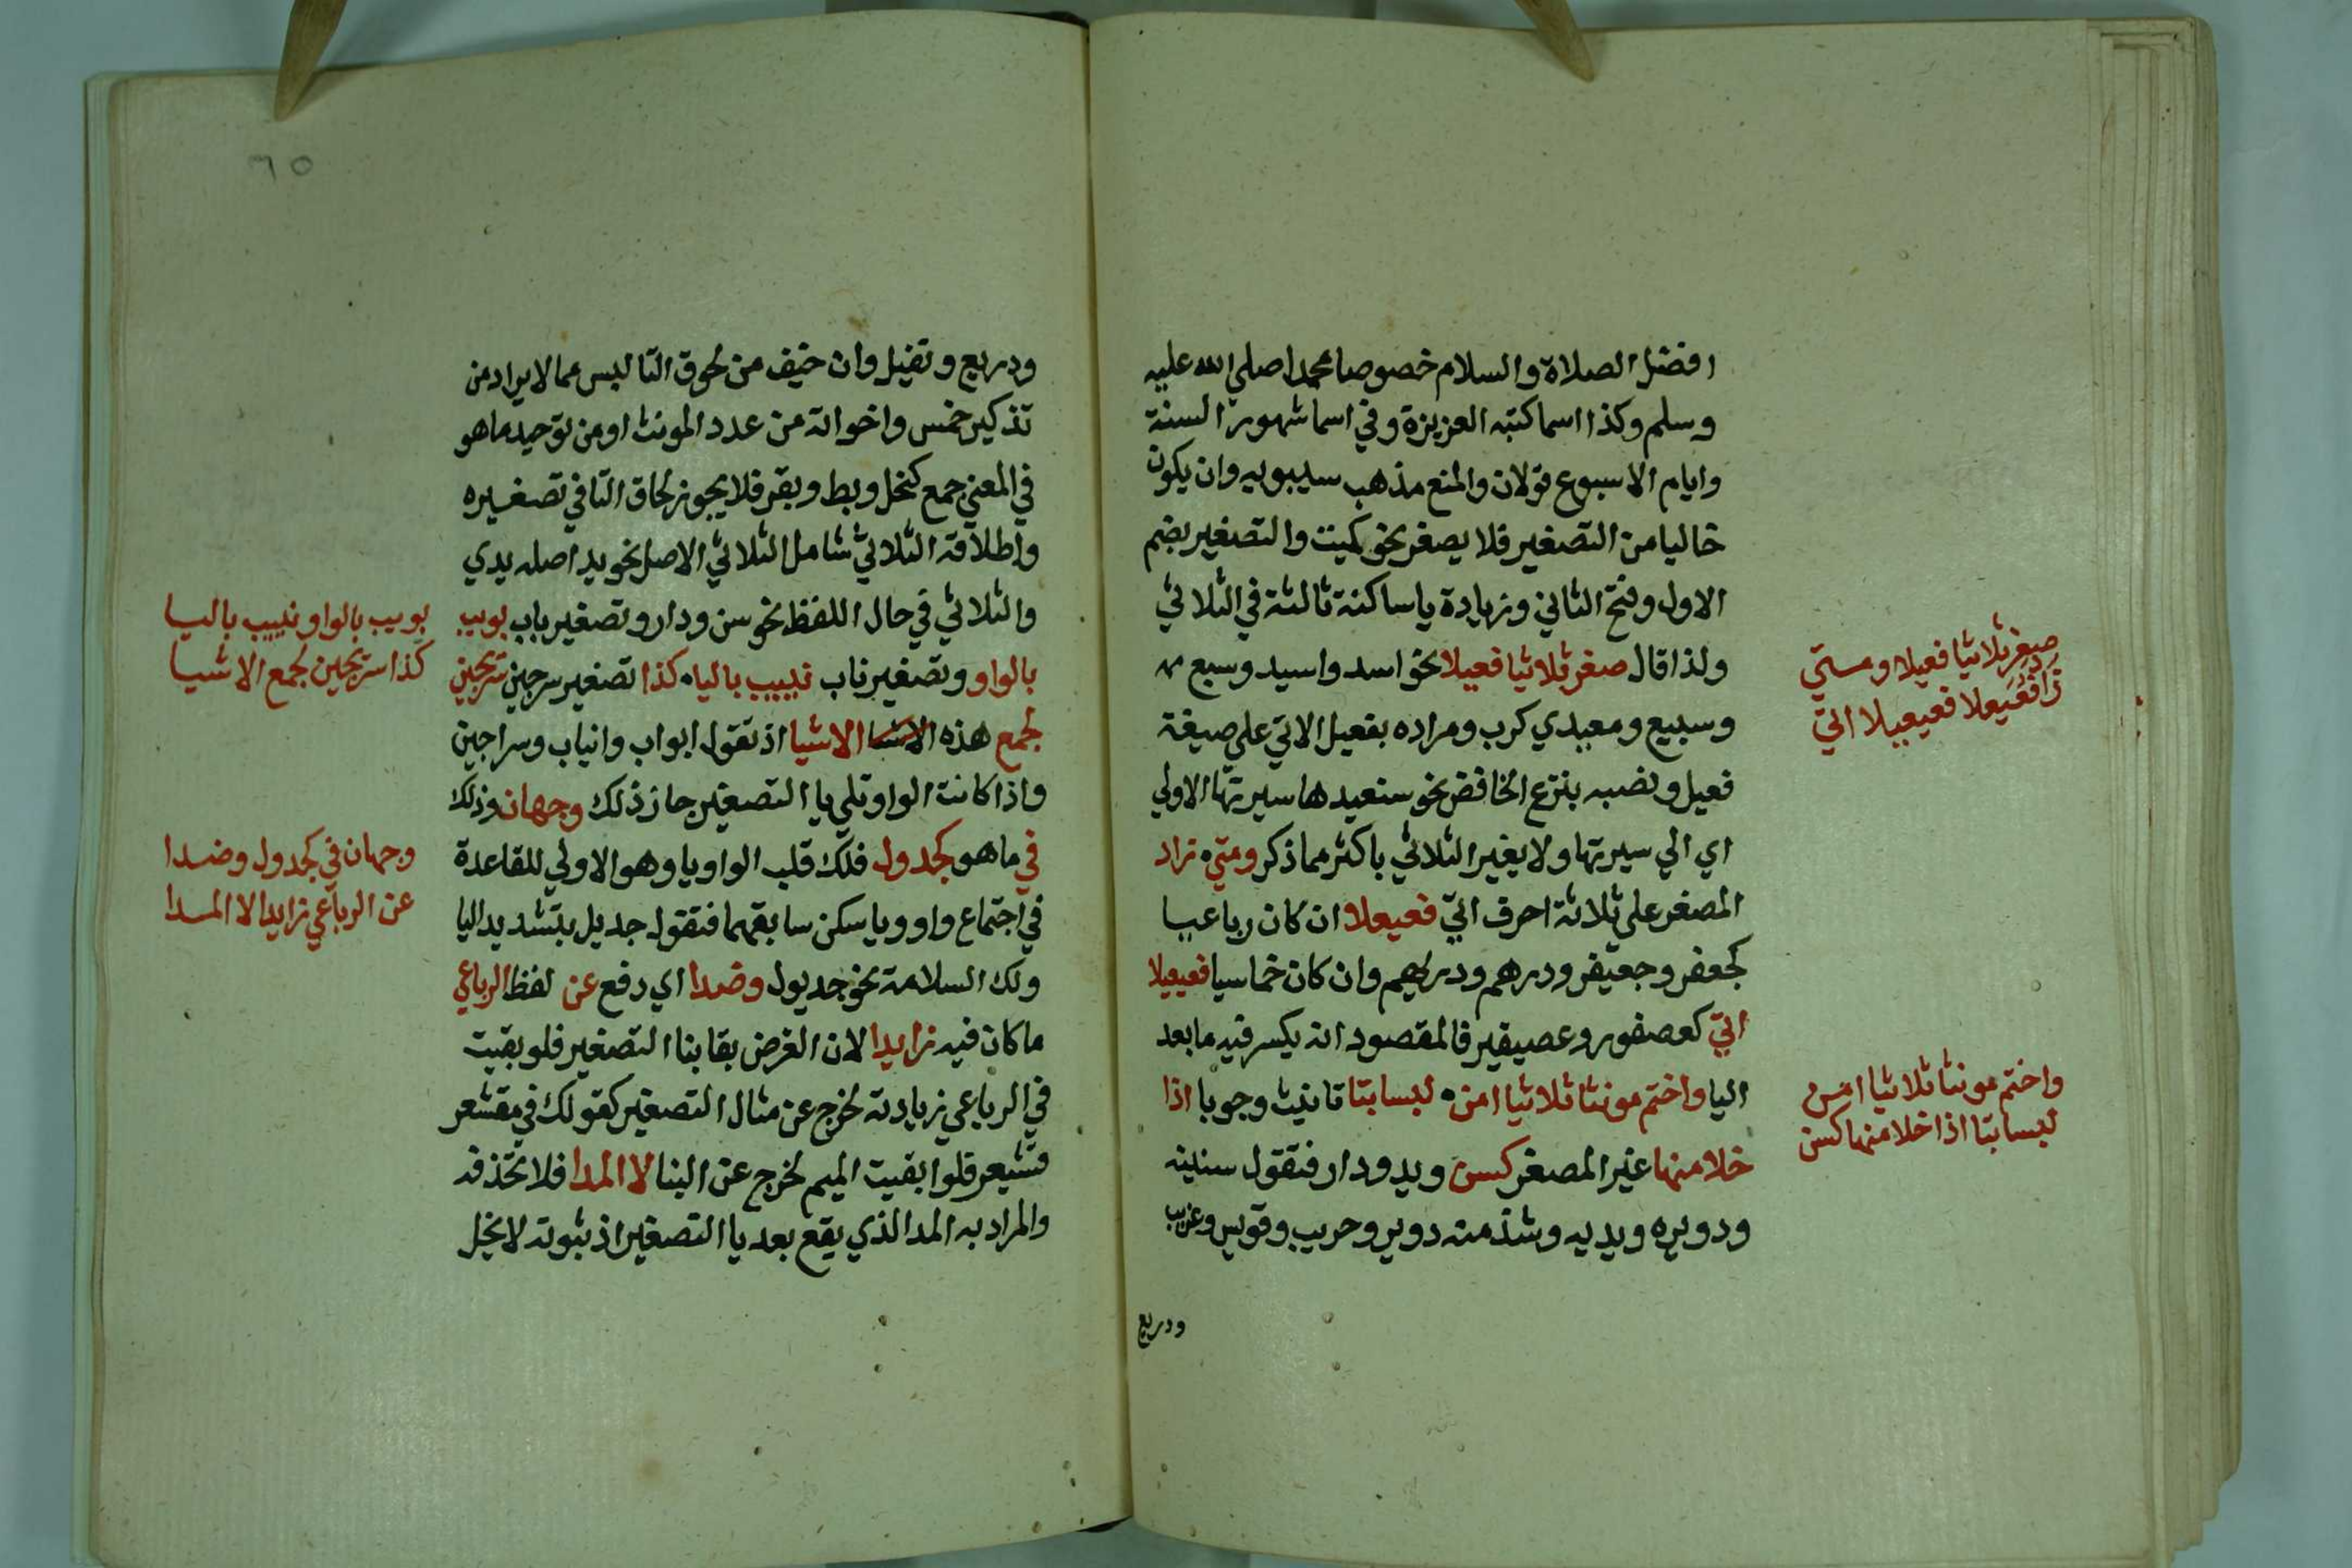 افضل الصلاة والسلام خصوصا محمدا صلي الله عليه
وسلم وكذا اسما كتبه العزيزة وفي اسما شهور السنة
وايام الاسبوع قولان والمنع مذهب سيبويه وان يكون
خاليا من التصغير فلا يصغر نحو كميت والتصغير بضم
الاول وفتح الثاني وزيادة يا ساكنة ثالثة في الثلاثي
ولذا قال صغر ثلاثيا فعيلا نحو اسد واسيد وسبع
وسبيع ومعيدي كرب ومراده بفعيل الاتي علي صيغة
فعيل ونصبه بنزع الخافض نحو سنعيدها سيرتها الاولي
اي الي سيرتها ولا يغير الثلاثي باكثر مما ذكر ومتي تزاد
المصغر علي ثلاثة احرف اتي فعيعلا ان كان رباعيا
كجعفر وجعيفر ودرهم ودريهم وان كان خماسيا فعيعيلا
اتي كعصفور وعصيفير فالمقصود انه يكسر فيه ما بعد
اليا واختم مونثا ثلاثيا امن لبسا بتا تانيث وجوبا اذا
خلا منها غير المصغر كسن ويد ودار فتقول سنينه
ودويره ويديه وشذ منه دوير وحريب وقويس وعريب
ودريع
صغر ثلاثيا فعيلا ومتي
زاد فعيعلا فعيعيلا اتي
واختم مونثا ثلاثيا امن
لبسا بتا اذا خلا منها كسن
٦٥
ودريع ونفيل وان خيف من لحوق التا لبس مما لا يراد من
تذكير خمس واخواته من عدد المونث او من توحيد ما هو
في المعني جمع كنخل وبط وبقر فلا يجوز لحاق التا في تصغيره
واطلاقه الثلاثي شامل الثلاثي الاصل نحو يد اصله يدي
والثلاثي في حال اللفظ نحو سن ودار وتصغير باب بويب
بالواو وتصغير ناب نييب باليا كذا تصغير سرجين سريجين
لجمع هذه الاشيا الاشيا اذ تقول ابواب وانياب وسراجين
واذا كانت الواو تلي يا التصغير جاز ذلك وجهان وذلك
في ما هو كجدول فلك قلب الواو يا وهو الاولي للقاعدة
في اجتماع واو ويا سكن سابقهما فتقول جديل بتشديد اليا
ولك السلامة نحو جديول وضدا اي دفع عن لفظ الرباعي
ما كان فيه زايدا لان الغرض بقا بنا التصغير فلو بقيت
في الرباعي زيادته لخرج عن مثال التصغير كقولك في مقشعر
قشيعر فلو ابقيت الميم لخرج عن البنا لا المدا فلا تحذفه
والمراد به المد الذي يقع بعد يا التصغير اذ ثبوته لا يخل
بويب بالواو نييب باليا
كذا سريجين لجمع الاشيا
وجهان في كجدول وضدا
عن الرباعي زايدا لا المدا